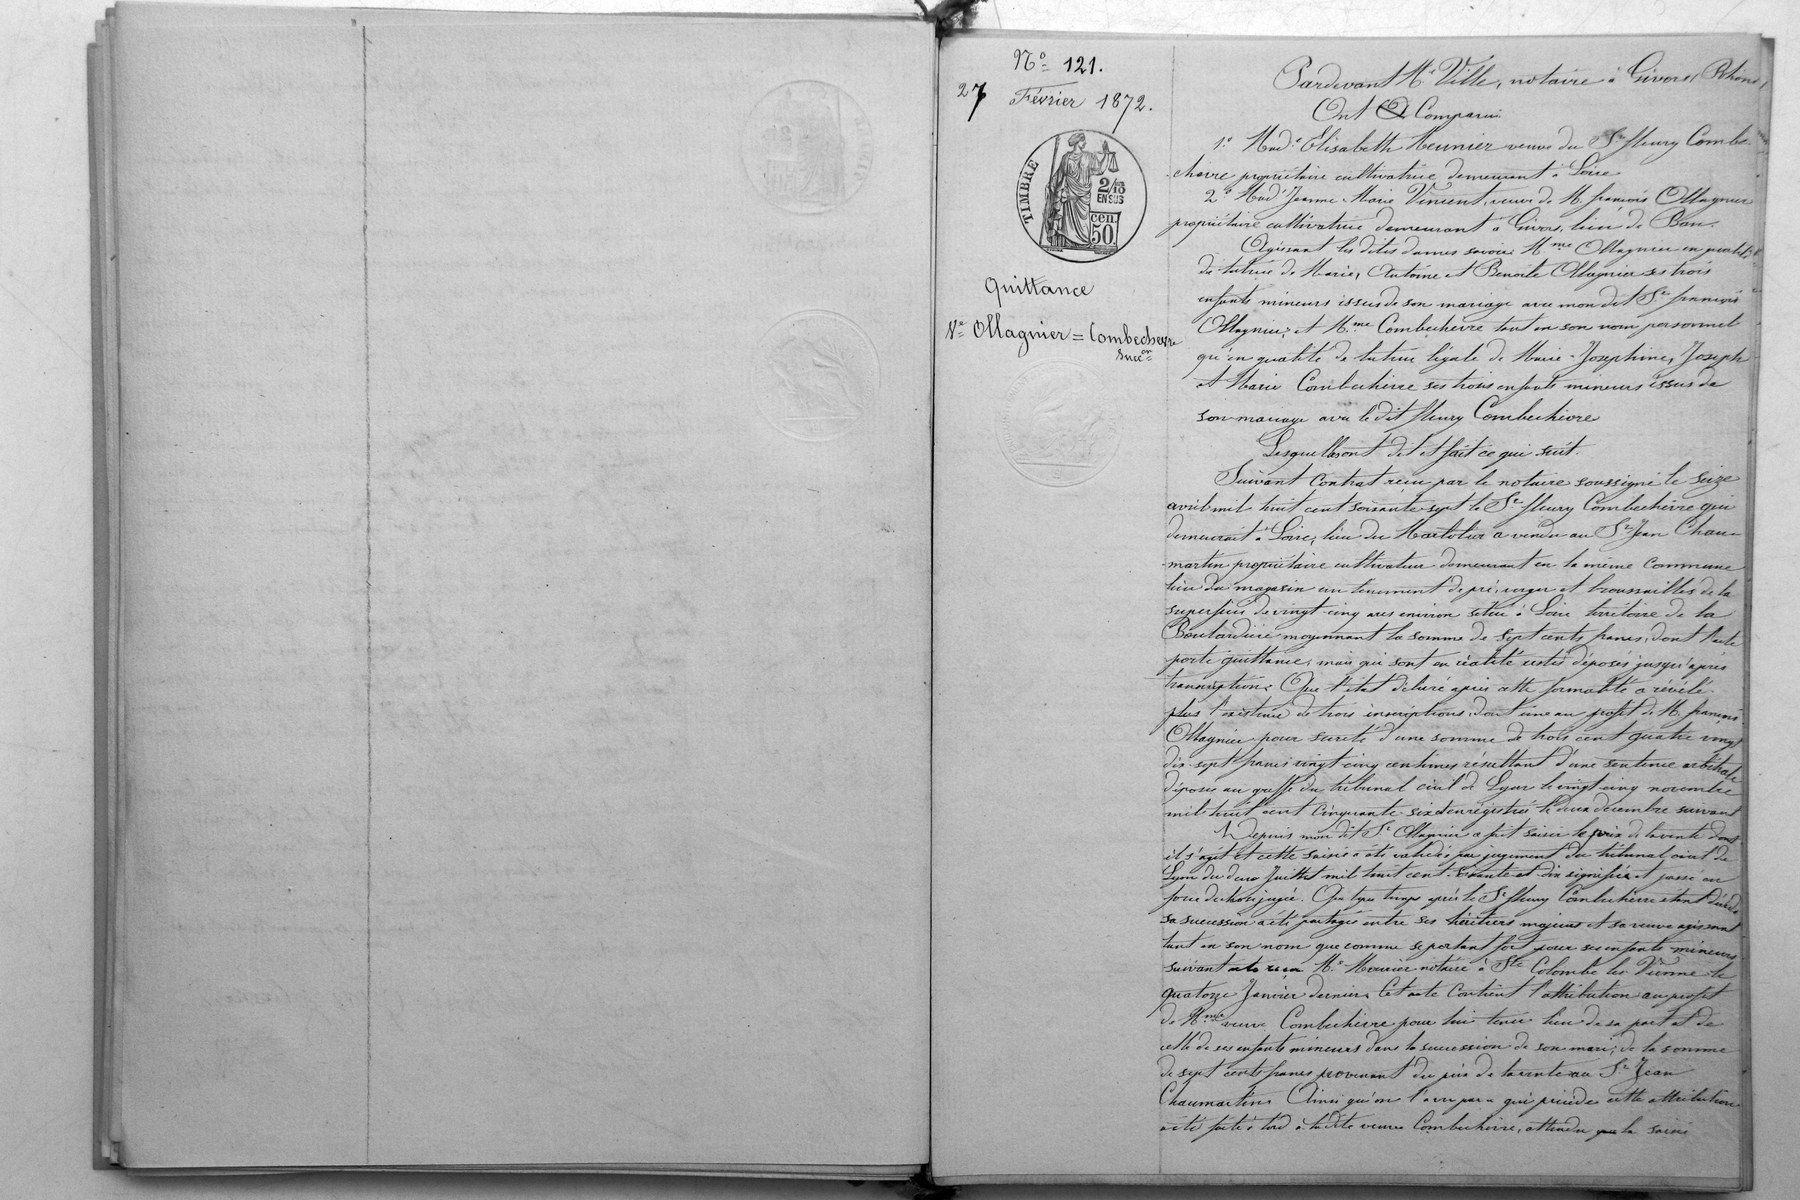 N° 121.
27 Février 1872.
TIMBRE
2/10
EN SUS
cen.
50.
Quittance
Ve Ollagnier = Combechevre
Succon
Pardevant Me Ville, notaire à Givors, Rhône,
Ont Comparu
1° Made Elisabeth Meunier veuve du Sr fleury Combe
chevre propriétaire cultivatrice demeurant à Loire
2° Made Jeanne Marie Vincent, veuve de M. françois Ollagnier
propriétaire cultivatrice demeurant à Givors, lieu de Ban.
Agissant les dites dames savoir Mme Ollagnier en qualité
de tutrice de Marie, Antoine et Benoite Ollagnier ses trois
enfants mineurs issus de son mariage avec mon dit Sr françois
Ollagnier, et Mme Combechevre tant en son nom personnel
qu'en qualité de tutrice légale de Marie-Josephine, Joseph
et Marie Combechevre ses trois enfants mineurs issus de
son mariage avec le dit fleury Combechevre
Lesquelles ont dit et fait ce qui suit.
Suivant Contrat reçu par le notaire soussigné le seize
avril mil huit cent soixante sept le Sr fleury Combechevre qui
demeurait à Loire, lieu du a vendu au Sr Jean Chau-
martin propriétaire cultivateur demeurant en la même commune
lieu du magasin un tenement de pré, verger et broussailles de la
superficie de vingt-cinq ares environ situé à Loire territoire de la
moyennant la somme de sept cents francs, dont l'acte
porte quittance, mais qui sont en réalité restés déposés jusqu'après
transcription. Que l'état délivré après cette formalité a révélé
plus l'existence de trois inscriptions, dont une au profit de M. françois
Ollagnier pour sureté d'une somme de trois cent quatre vingt
dix-sept francs vingt cinq centimes résultant d'une sentence arbitrale
déposée au greffe du tribunal civil de Lyon le vingt-cinq novembre
mil huit cent cinquante six et enregistrée le deux décembre suivant
Depuis mon dit Sr Ollagnier a fait saisir le prix de la vente dont
il s'agit et cette saisie a été validée par jugement du tribunal civil de
Lyon du deux Juillet mil huit cent soixante et dix signifié et passé en
force de chose jugée. Que temps après le Sr fleury Combechevre étant décédé
sa succession a été partagée entre ses héritiers majeurs et sa veuve agissant
tant en son nom que comme se portant fort pour ses enfants mineurs
suivant acte reçu Me Mourier notaire à Ste Colombe les Vienne le
quatorze Janvier dernier. Cet acte contient l'attribution au profit
de Mme veuve Combechevre pour lui tenir lieu de sa part et de
celle de ses enfants mineurs dans la succession de son mari, de la somme
de sept cents francs provenant du prix de la vente au Sr Jean
Chaumartin. Ainsi qu'on l'a vu par ce qui précède cette attribution
a été faite à tord à la dite veuve Combechevre, attendu que la saisie